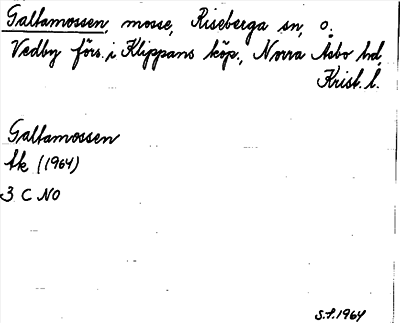 Galtamossen, mosse, Riseberga sn, o.
Vedby förs. i Klippans köp., Norra Åsbo hd,
Krist. l.
Galtamossen
tk (1964)
3 C NO
S.f. 1964